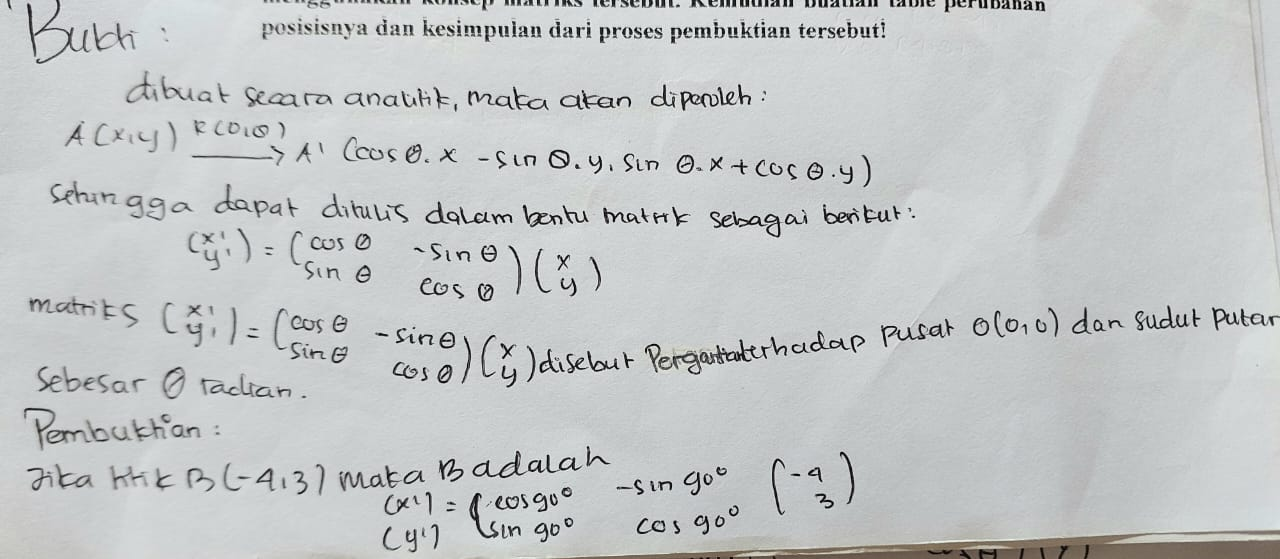 menggunakan konsep matriks tersebut. Kemudian buatlah table perubahan
posisisnya dan kesimpulan dari proses pembuktian tersebut!
Bukti :
dibuat secara analitik, maka akan diperoleh :
A(x,y) R(0,θ) → A' (cos θ. x - sin θ. y, sin θ. x + cos θ. y)
Sehingga dapat ditulis dalam bentu matrik sebagai berikut :
(x' y') = (cos θ -sin θ sin θ cos θ) (x y)
matriks (x' y') = (cos θ -sin θ sin θ cos θ) (x y) disebut terhadap pusat O(0,0) dan sudut putar
Sebesar θ radian.
Pembuktian :
Jika titik B(-4,3) maka B adalah
(x') = (cos 90° -sin 90° (-4
(y') sin 90° cos 90° 3)